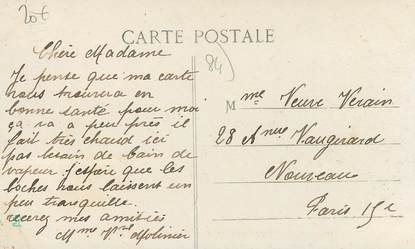 20€
CARTE POSTALE
84)
Chère Madame
Je pense que ma carte
vous trouvera en
bonne santé pour moi
ça va a peu près il
fait très chaud ici
pas besoin de bain de
vapeur. j'espère que les
boches vous laissent un
peu tranquille.
recevez mes amitiés
Mme Vve Molinier
Mme Veuve Verain
28 Anue Vaugirard
Nouveau
Paris 15e